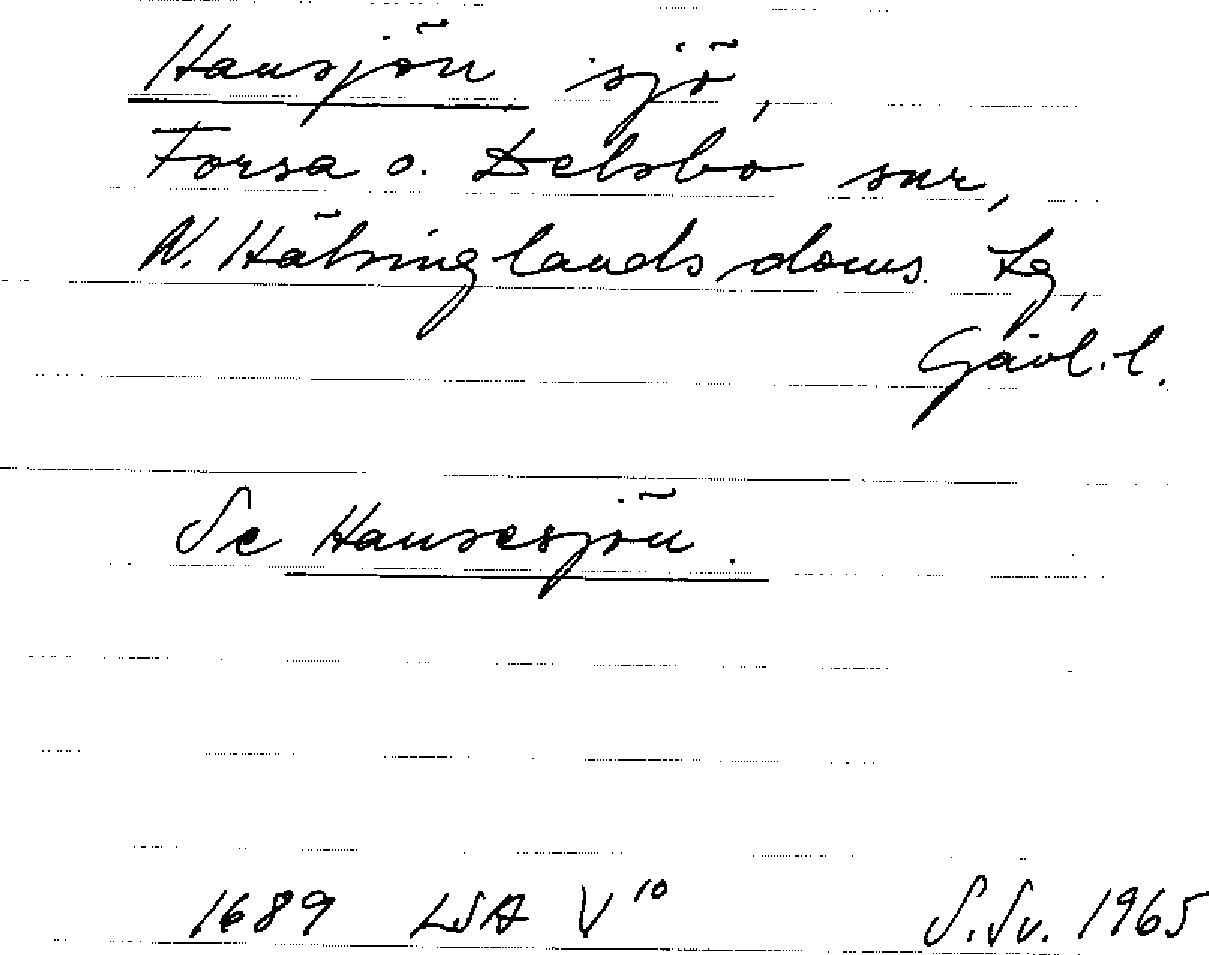 Hansjön sjö,
Forsa o. Delsbo snr,
N. Hälsinglands doms. Lg,
Gävl. l.
Se Hansesjön.
1689 LSA V¹⁰ S. Sv. 1965